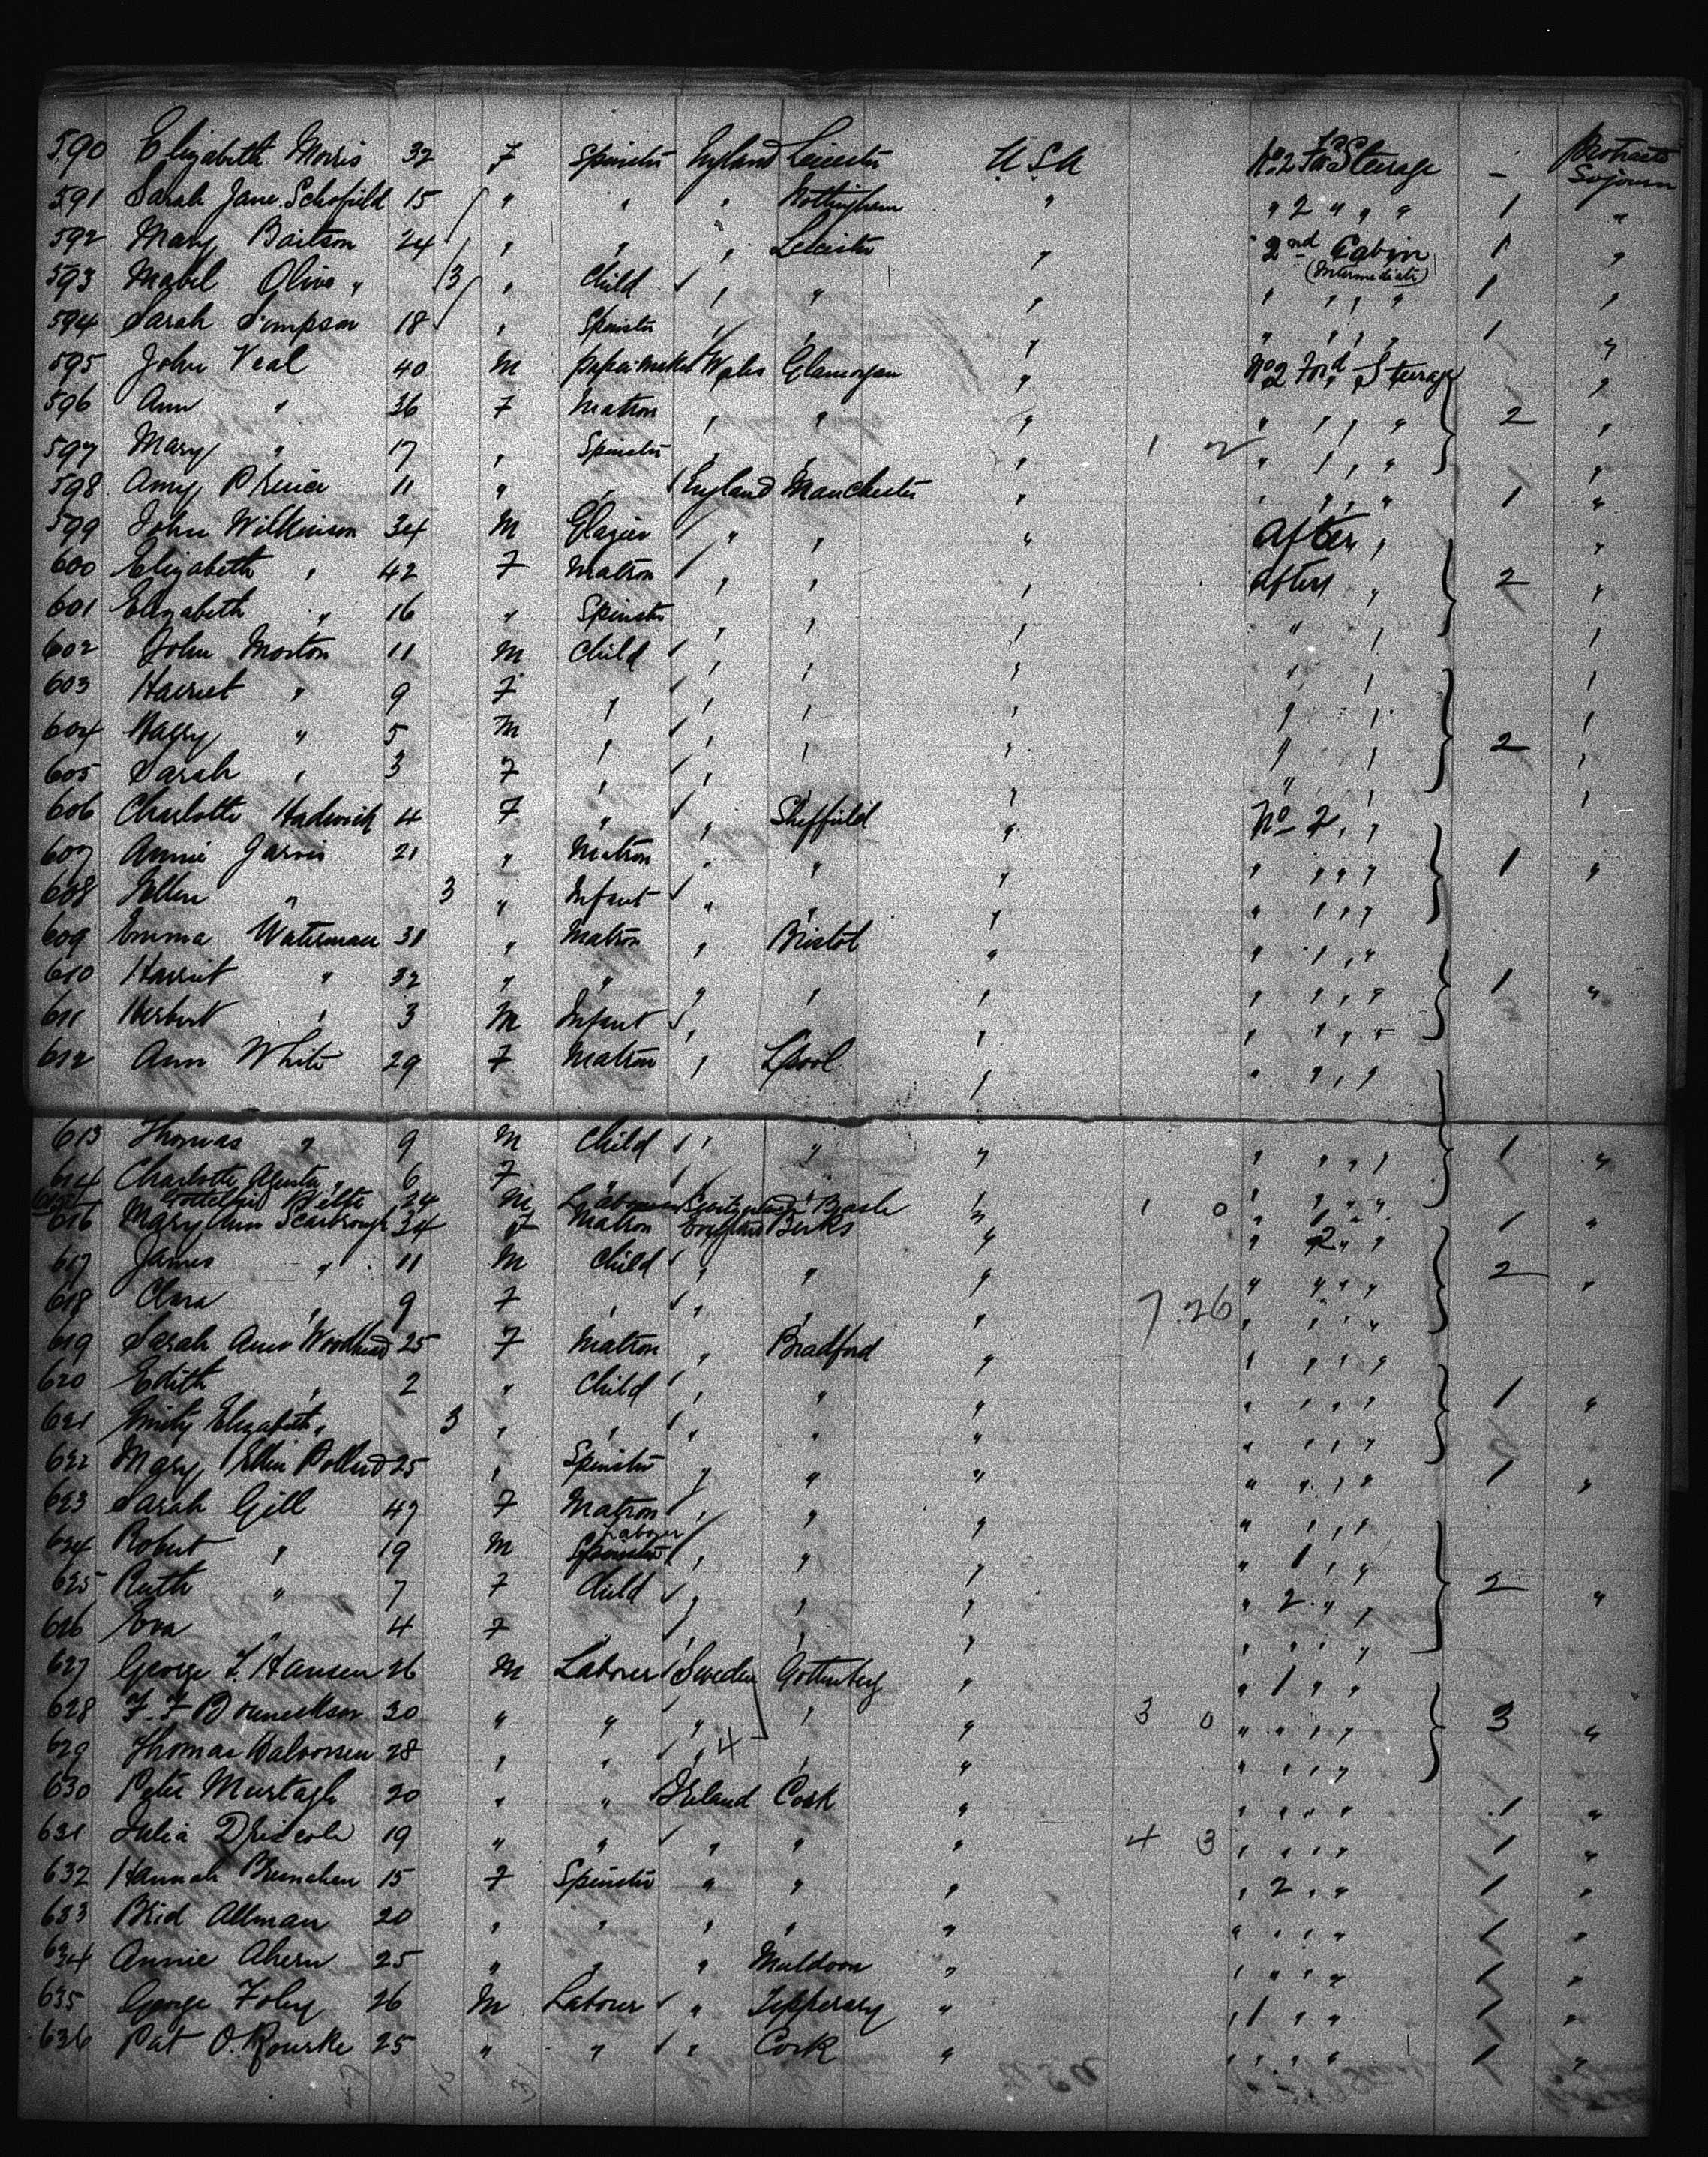 590 Elizabeth Morris 32 F Spinster England Leicester U.S.A No 2 Steerage - Protracted Sojourn
591 Sarah Jane Schofield 15 " " " Nottingham " " 2 " " " 1 "
592 Mary Baitson 24 " " " Leicester " 2nd Cabin (Intermediate) 1 "
593 Mabel Olive " 3 " Child " " " " " " " 1 "
594 Sarah Simpson 18 " Spinster " " " " " " " 1 "
595 John Veal 40 M paper-maker Wales Glamorgan " No 2 Ford Steerage "
596 Ann " 36 F Matron " " " " " " " 2 "
597 Mary " 17 " Spinster " " " 1 2 " " " " "
598 Amy 11 " " England Manchester " " " " " 1 "
599 John Wilkinson 34 M Glazier " " " After " " "
600 Elizabeth " 42 F Matron " " " After " 2 "
601 Elizabeth " 16 " Spinster " " " " " "
602 John Morton 11 M Child " " " " " "
603 Harriet " 9 F " " " " " " "
604 Harry " 5 M " " " " " " 2 "
605 Sarah " 3 F " " " " " " "
606 Charlotte Hadwick 4 F " " Sheffield " No 2 " "
607 Annie Jarvis 21 " Matron " " " " " " " 1 "
608 Ellen " 3 " Infant " " " " " " "
609 Emma Waterman 31 " Matron " Bristol " " " " "
610 Harriet " 32 " " " " " " " " " 1 "
611 Herbert " 3 M Infant " " " " " " "
612 Ann White 29 F Matron " Lpool " " " " "
613 Thomas " 9 M Child " " " " " " " 1 "
614 Charlotte " 6 F " " " " " " " "
615 24 M Laborer Switzerland Basle " 1 0 " 1 " " 1 "
616 Mary Ann Scarbrough 34 F Matron England Berks " " 2 " "
617 James " 11 M Child " " " " " " " 2 "
618 Clara " 9 F " " " " 7 26 " " " "
619 Sarah Ann Woodhead 25 F Matron " Bradford " " " " "
620 Edith " 2 " Child " " " " " " " 1 "
621 Emily Elizabeth " 3 " " " " " " " " "
622 Mary Ellen Pollard 25 " Spinster " " " " " " " 1 "
623 Sarah Gill 47 F Matron " " " " " " "
624 Robert " 19 M Spinster Laborer " " " " 1 " "
625 Ruth " 7 F Child " " " " 2 " " 2 "
626 Eva " 4 F " " " " " " " "
627 George F. Hansen 26 M Laborer Sweden Gottenberg " " 1 " "
628 F. F. 30 " " " " " 3 0 " " " " 3 "
629 Thomas Halvorsen 28 " " " 4 " " " " " "
630 Peter Murtagh 20 " " Ireland Cork " " " " " 1 "
631 Julia Driscole 19 " " " " " 4 3 " " " " 1 "
632 Hannah Brenahan 15 F Spinster " " " " 2 " " 1 "
633 Brid Allman 20 " " " " " " " " " 1 "
634 Annie Ahern 25 " " " Muldoon " " " " " 1 "
635 George Foley 26 M Laborer " Tipperary " " 1 " " 1 "
636 Pat O.Rourke 25 " " " Cork " " " " " 1 "